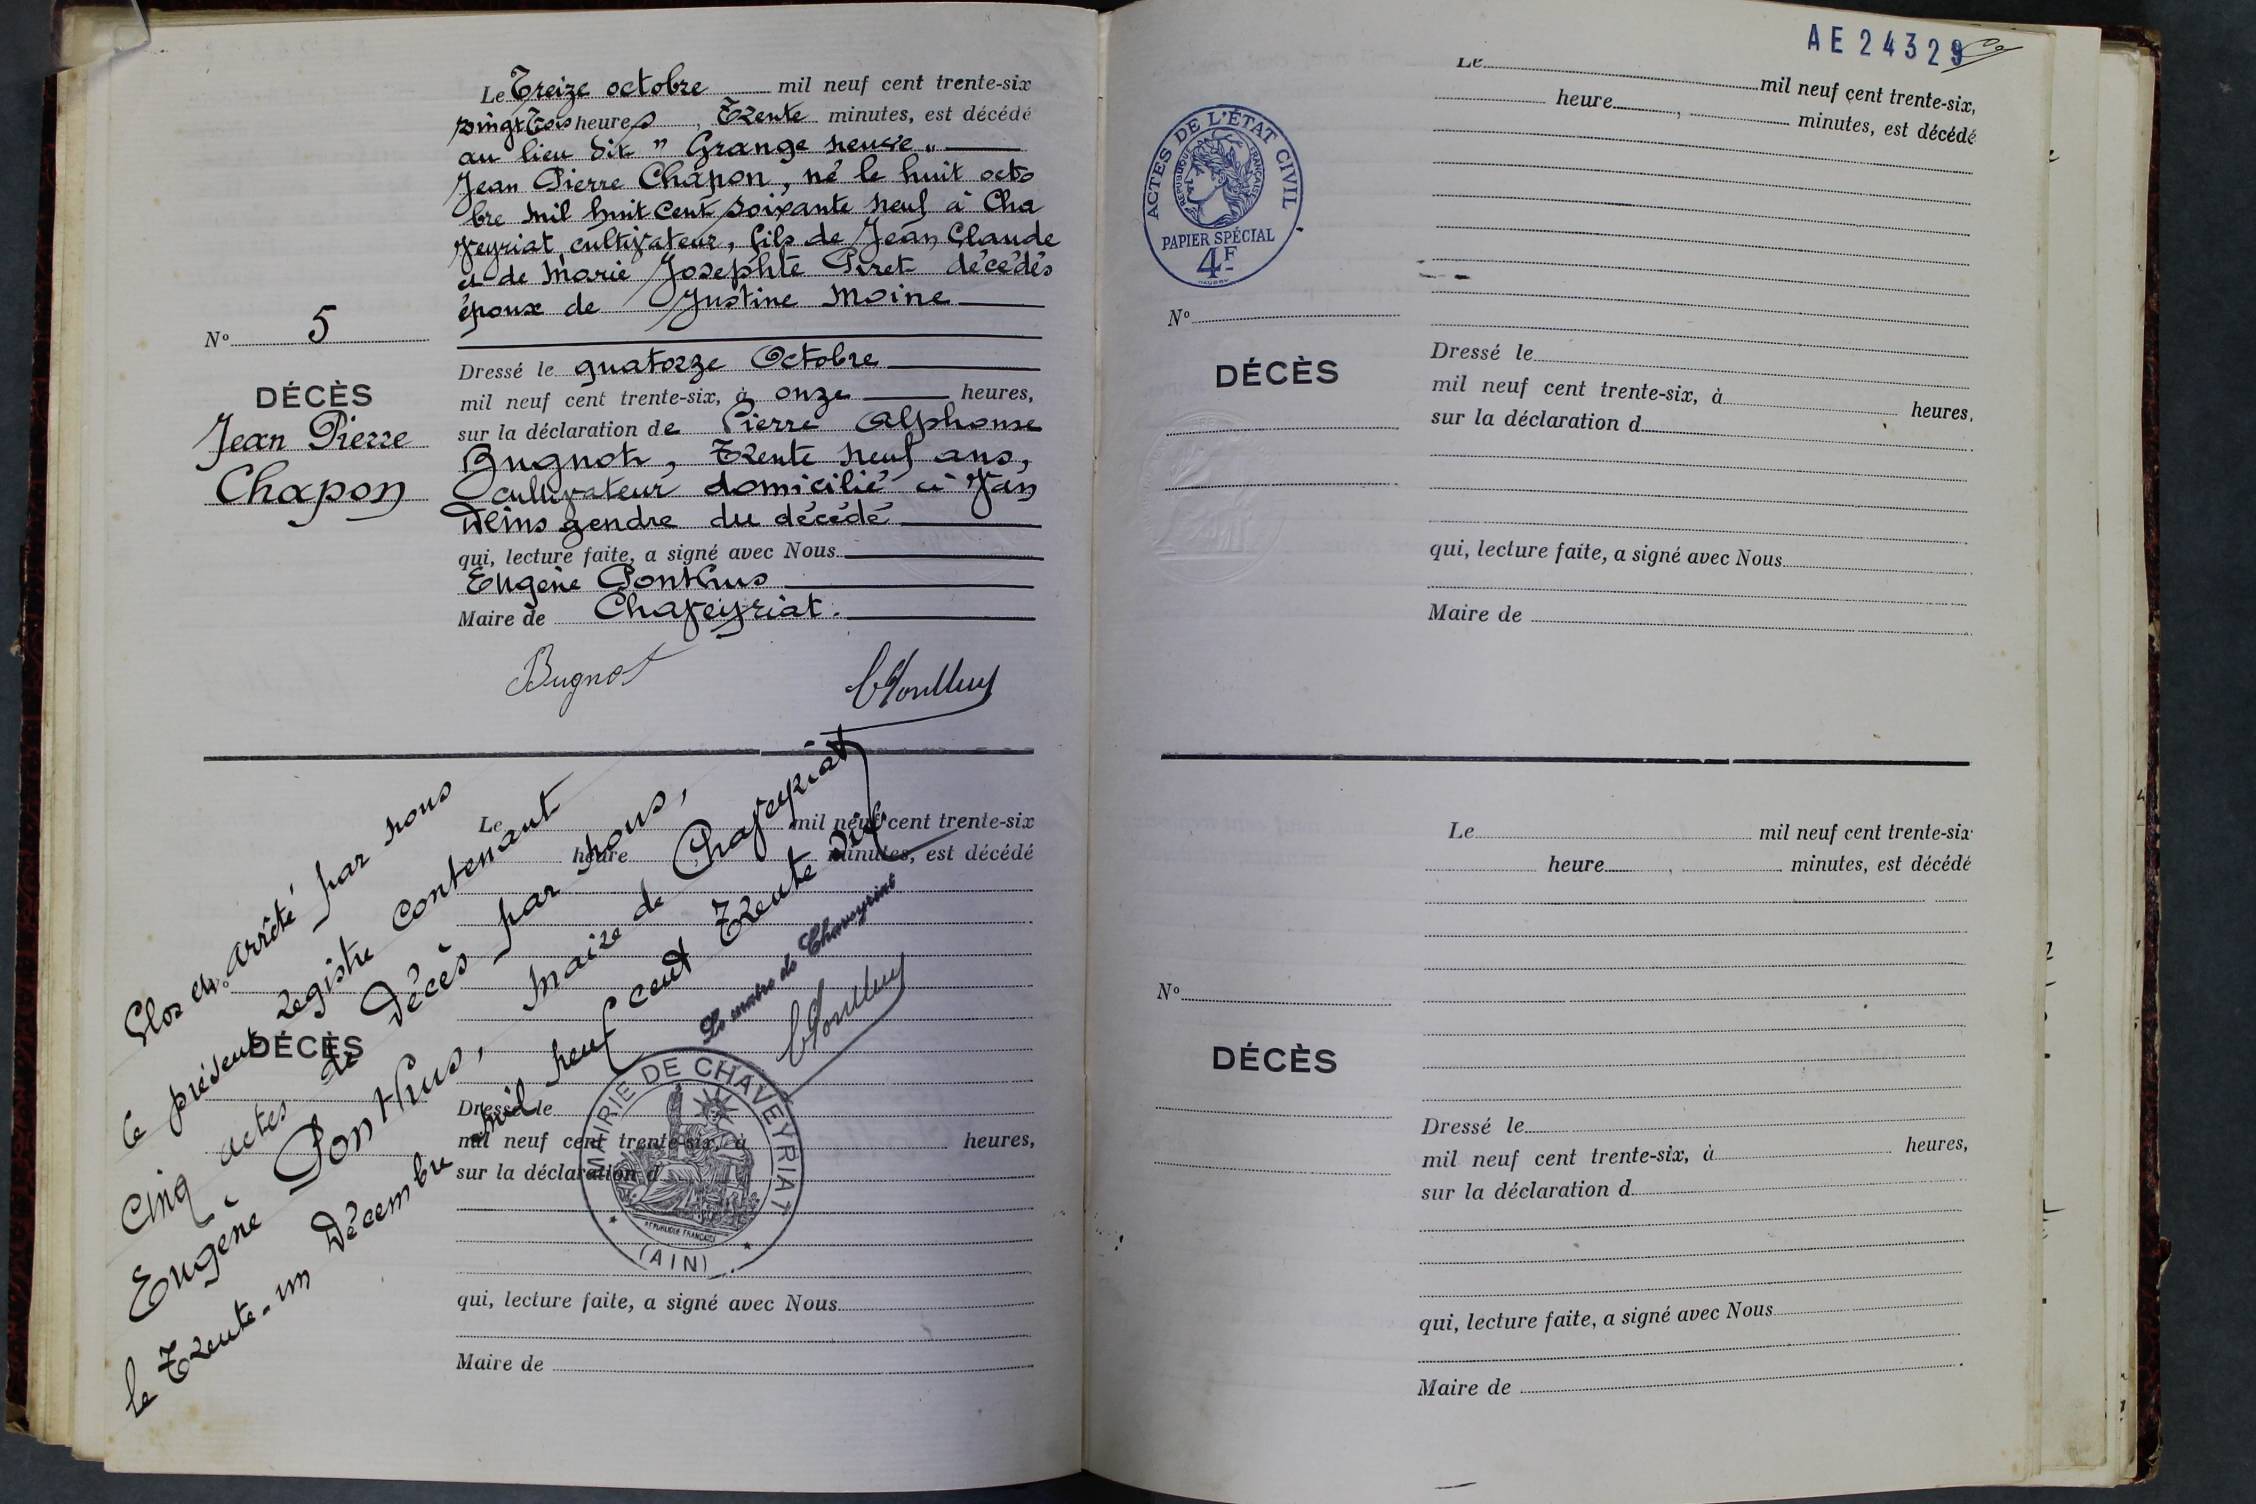 Le Treize octobre mil neuf cent trente-six
vingt trois heures, Trente minutes, est décédé
au lieu dit " Grange neuve "
Jean Pierre Chapon, né le huit octo
bre mil huit cent soixante neuf à Cha
veyriat cultivateur, fils de Jean Claude
et de Marie Josephte Piret décédés
époux de Justine Moine
N° 5
DÉCÈS
Jean Pierre
Chapon
Dressé le quatorze Octobre
mil neuf cent trente-six, à onze heures,
sur la déclaration de Pierre Alphonse
Bugnot, Trente neuf ans,
cultivateur domicilié à Van
deins gendre du décédé
qui, lecture faite, a signé avec Nous
Eugène Ponthus
Maire de Chaveyriat.
Bugnot
Clos et arrêté par nous
le présent registre contenant
cinq actes de Décès par nous,
Eugène Ponthus, maire de Chaveyriat
le Trente-un Décembre mil neuf cent Trente six
Le maire de Chaveyriat
MAIRIE DE CHAVEYRIAT
RÉPUBLIQUE FRANÇAISE
(AIN)
Le mil neuf cent trente-six
heure minutes, est décédé
N°
DÉCÈS
Dressé le
mil neuf cent trente-six, à heures,
sur la déclaration d
qui, lecture faite, a signé avec Nous
Maire de
AE 24329
ACTES DE L'ÉTAT CIVIL
RÉPUBLIQUE FRANÇAISE
PAPIER SPÉCIAL
4F
Le mil neuf cent trente-six,
heure , minutes, est décédé
N°
DÉCÈS
Dressé le
mil neuf cent trente-six, à heures,
sur la déclaration d
qui, lecture faite, a signé avec Nous
Maire de
Le mil neuf cent trente-six
heure , minutes, est décédé
N°
DÉCÈS
Dressé le
mil neuf cent trente-six, à heures,
sur la déclaration d
qui, lecture faite, a signé avec Nous
Maire de